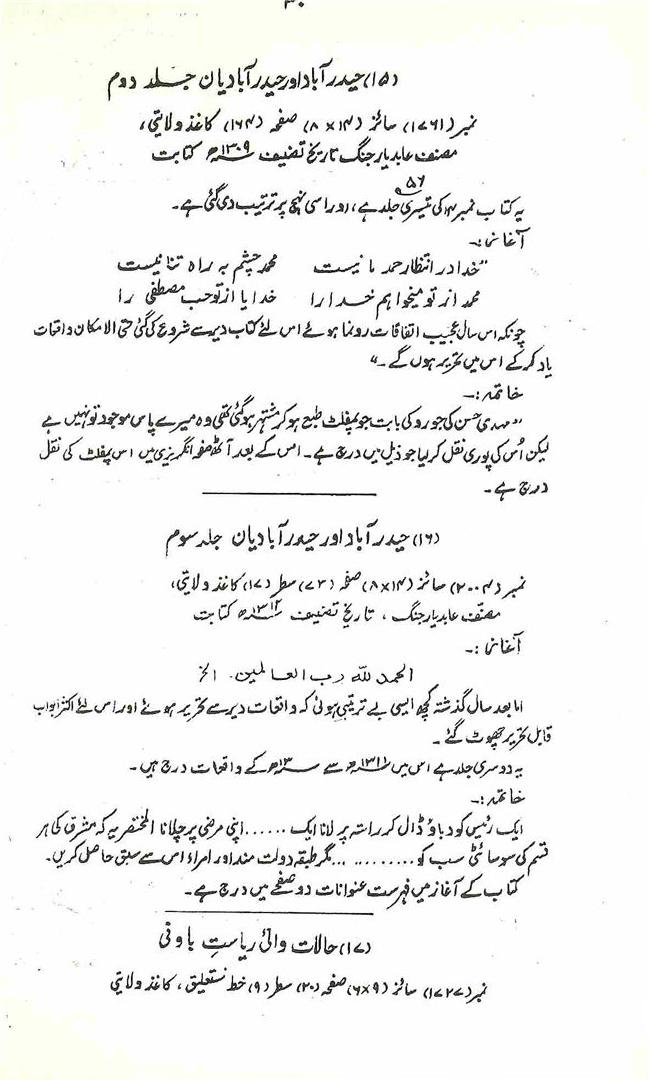 ۳۰
(۱۵) حیدرآباد اور حیدرآبادیان جلد دوم
نمبر (۱۷۶۱) سائز (۱۴×۸) صفحہ (۱۶۴) کاغذ ولایتی،
مصنف عابد یار جنگ تاریخ تصنیف ۱۳۰۹ھ کتابت
۵۶
یہ کتاب نمبر ۱۴ کی تیسری جلد ہے، اور اسی نہج پر ترتیب دی گئی ہے۔
آغاز:۔
”خدا در انتظار حمد ما نیست محمد چشم بہ راہ ثنا نیست
محمد از تو میخواہم خدا را خدایا از تو حب مصطفیٰ را
چونکہ اس سال عجیب اتفاقات رونما ہوئے اس لئے کتاب دیر سے شروع کی گئی حتی الامکان واقعات
یاد کر کے اس میں تحریر ہوں گے۔“
خاتمہ:۔
”مہدی حسن کی جورو کی بابت جو پمفلٹ طبع ہو کر مشتہر ہو گئی تھی وہ میرے پاس موجود تو نہیں ہے
لیکن اُس کی پوری نقل کر لیا جو ذیل میں درج ہے۔ اس کے بعد آٹھ صفحہ انگریزی میں اس پمفلٹ کی نقل
درج ہے۔
(۱۶) حیدرآباد اور حیدرآبادیان جلد سوم
نمبر (۲۰۰۴) سائز (۱۴×۸) صفحہ (۷۳) سطر (۱۷) کاغذ ولایتی،
مصنّف عابد یار جنگ، تاریخ تصنیف ۱۳۱۲ھ کتابت
آغاز:۔
الحمد للہ رب العالمین۔ الخ
اما بعد سال گذشتہ کچھ ایسی بے ترتیبی ہوئی کہ واقعات دیر سے تحریر ہوئے اور اس لئے اکثر ابواب
قابل تحریر چھوٹ گئے۔
یہ دوسری جلد ہے اس میں ۱۳۱۱ھ سے ۱۳ھ کے واقعات درج ہیں۔
خاتمہ:۔
ایک رئیس کو دباؤ ڈال کر راستہ پر لانا ایک ...... اپنی مرضی پر چلانا المختصر یہ کہ مشرق کی ہر
قسم کی سوسائٹی سب کو ............ مگر طبقہ دولت مند اور امراء اس سے سبق حاصل کریں۔
کتاب کے آغاز میں فہرست عنوانات دو صفحے میں درج ہے۔
(۱۷) حالات والئ ریاستِ باونی
نمبر (۱۷۲۷) سائز (۹×۶) صفحہ (۲۰) سطر (۹) خط نستعلیق، کاغذ ولایتی